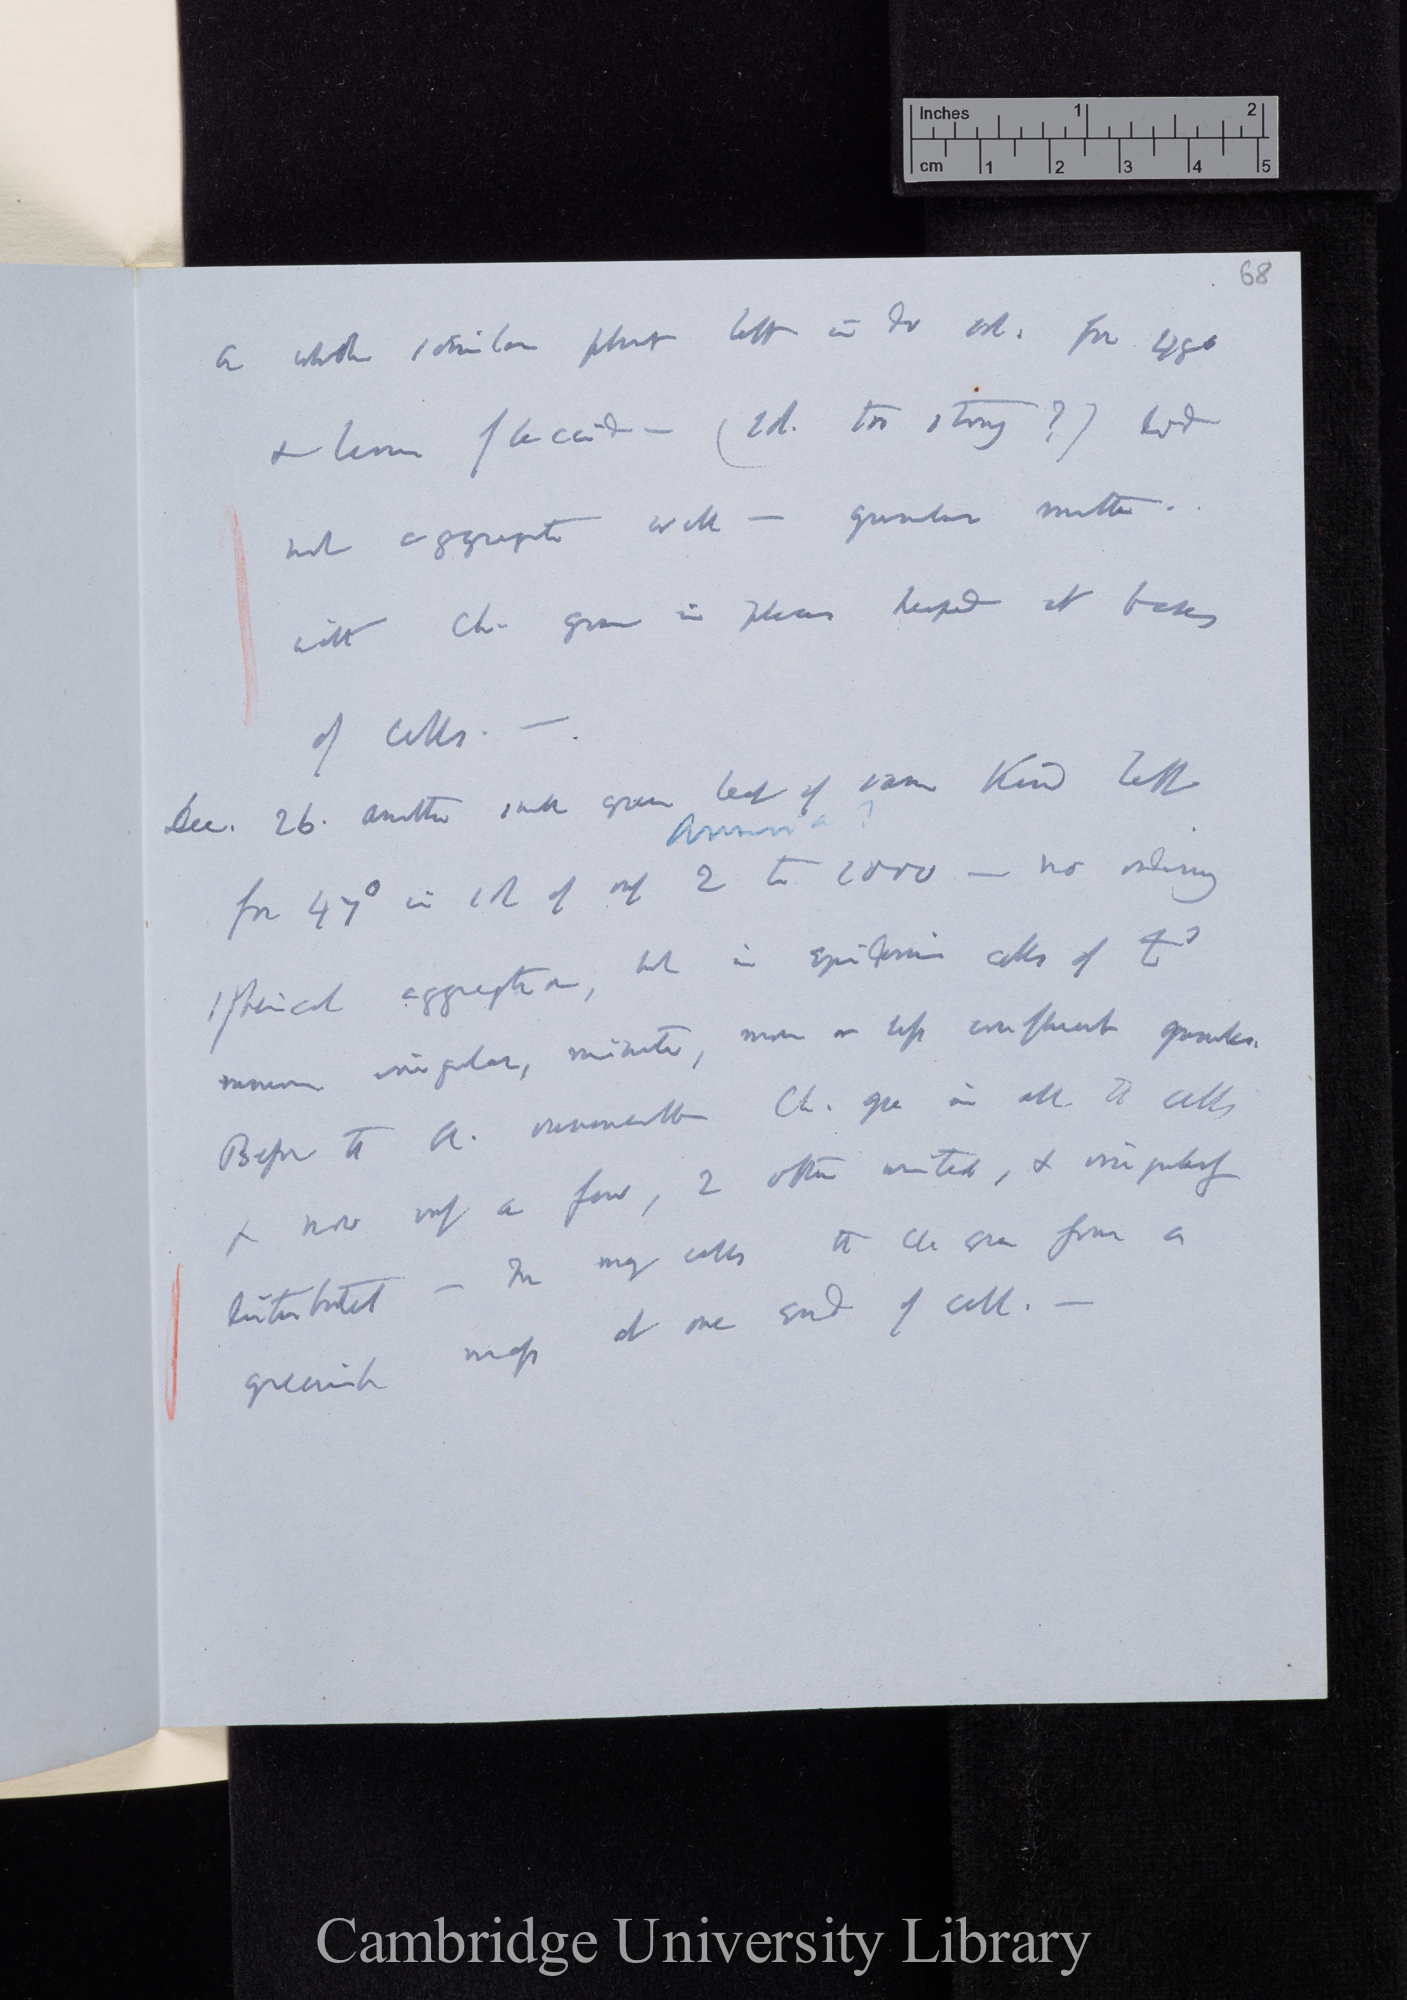 Inches 1 2
cm 1 2 3 4 5
68
A whole similar plant left in do sol. for
& leaves flaccid — (sol. too strong?) did
not aggregate well — granular matter.
with Ch. grains in places heaped at bases
of cells. —
Dec. 26. Another small green leaf of same kind left
Ammonia?
for 47° in sol of only 2 to 1000 — no ordinary
spherical aggregation, but in epidermis cells of
numerous irregular, minute, more or less confluent granules.
Before the A. innumerable Ch. gr in all the cells
& now only a few, 2 often united, & irregularly
distributed — In many cells the Ch grs form a
greenish mass at one end of cell. —
Cambridge University Library